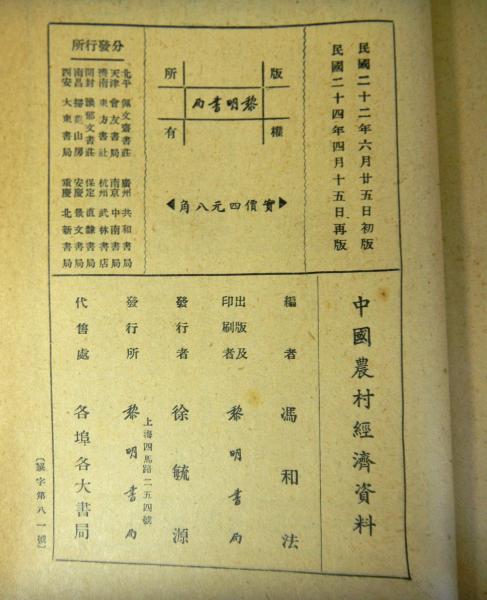 民國二十二年六月廿五日初版
民國二十四年四月十五日再版
版權所有
黎明書局
實價四元八角
分發行所
北平 佩文齋書莊
天津 會友書局
濟南 東方書社
開封 豫郁文書莊
南昌 掃葉山房
西安 大東書局
廣州 共和書局
南京 中南書局
杭州 武林書店
保定 直隸書局
安慶 景文書局
重慶 北新書局
中國農村經濟資料
編者 馮和法
出版及印刷者 黎明書局
發行者 徐毓源
上海四馬路二五四號
發行所 黎明書局
代售處 各埠各大書局
字第八一號